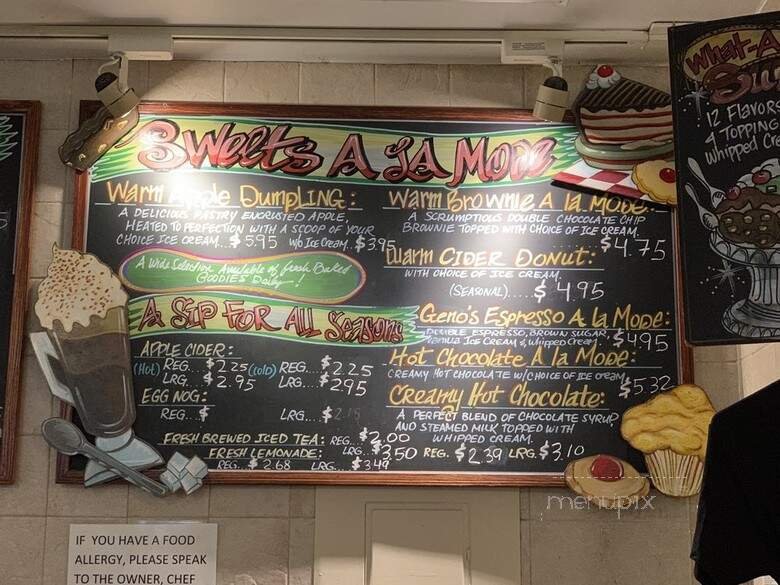 Sweets A La Mode
Warm Apple Dumpling:
A DELICIOUS PASTRY ENCRUSTED APPLE,
HEATED TO PERFECTION WITH A SCOOP OF YOUR
CHOICE ICE CREAM...$5.95 W/O ICE CREAM..$3.95
A Wide Selection Available of Fresh Baked
GOODIES Daily!
A SIP FOR ALL SEASONS
APPLE CIDER:
(Hot) REG...$2.25 (cold) REG...$2.25
LRG...$2.95 LRG...$2.95
EGG NOG:
REG...$ LRG...$
FRESH BREWED ICED TEA: REG...$2.00
LRG...$3.50
FRESH LEMONADE:
REG...$2.68 LRG...$3.49
Warm Brownie A la MODE:
A SCRUMPTIOUS DOUBLE CHOCOLATE CHIP
BROWNIE TOPPED WITH CHOICE OF ICE CREAM.
$4.75
Warm CIDER DONUT:
WITH CHOICE OF ICE CREAM.
(SEASONAL).....$4.95
Geno's Espresso A la Mode:
DOUBLE ESPRESSO, BROWN SUGAR,
Vanilla ICE CREAM & whipped cream. $4.95
Hot Chocolate A la Mode:
CREAMY HOT CHOCOLATE W/CHOICE OF ICE CREAM $5.32
Creamy Hot Chocolate:
A PERFECT BLEND OF CHOCOLATE SYRUP
AND STEAMED MILK TOPPED WITH
WHIPPED CREAM.
REG. $2.39 LRG. $3.10
What-A
Su
12 FLAVORS
4 TOPPING
Whipped Cre
IF YOU HAVE A FOOD
ALLERGY, PLEASE SPEAK
TO THE OWNER, CHEF
menupix